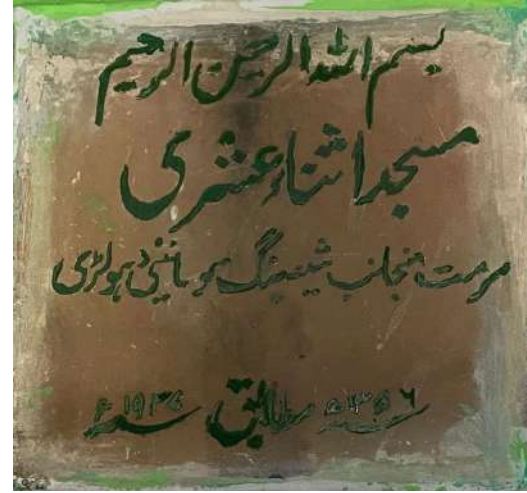 بسم اللہ الرحمن الرحیم
مسجد اثناء عشری
مرمت منجانب شیبنگ ہولڑی
سنہ ۱۳۵۶ھ مطابق سنہ ۱۹۳۷ء